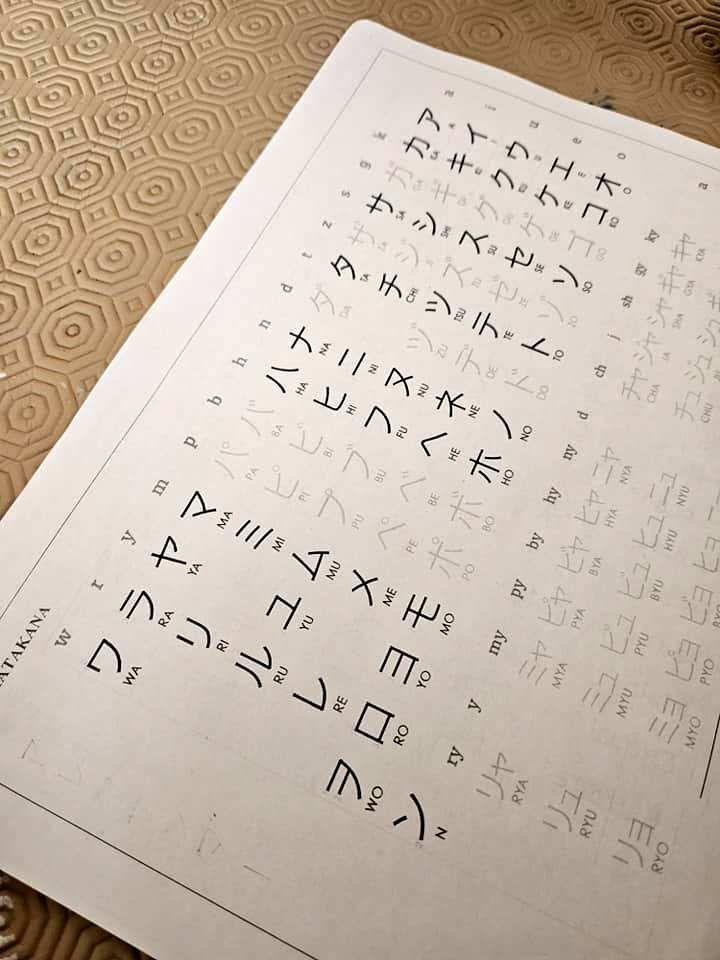 ATAKANA
w r y m p b h n d t z s g k
ワ ラ ヤ マ パ バ ハ ナ ダ タ ザ サ ガ カ ア a
WA RA YA MA PA BA HA NA DA TA SA A
リ ミ ピ ビ ヒ ニ チ ジ シ ギ キ イ i
RI MI PI BI HI NI CHI SHI
ル ユ ム プ ブ フ ヌ ヅ ツ ズ ス グ ク ウ u
RU YU MU PU BU FU NU ZU TSU SU
レ メ ペ ベ ヘ ネ デ テ ゼ セ ゲ ケ エ e
RE ME PE BE HE NE DE TE SE
ヲ ロ ヨ モ ポ ボ ホ ノ ド ト ゾ ソ ゴ コ オ o
WO RO YO MO PO BO HO NO DO TO SO O
ン
N
ry y my py by hy ny d ch j sh gy ky
リャ ミャ ピャ ビャ ヒャ ニャ チャ ジャ シャ ギャ キャ a
RYA MYA PYA BYA HYA NYA CHA JA SHA GYA KYA
リュ ミュ ピュ ビュ ヒュ ニュ チュ ジュ
RYU MYU PYU BYU HYU NYU CHU
リョ ミョ ピョ ビョ
RYO MYO PYO